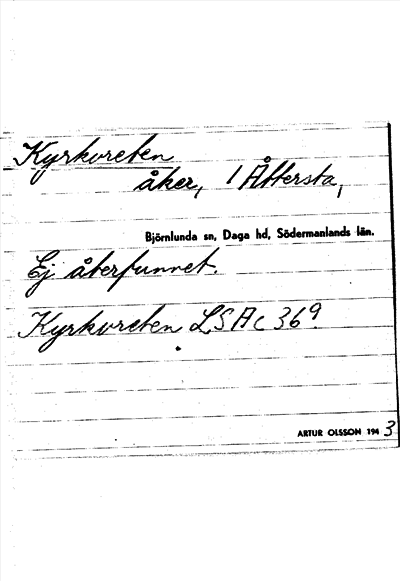 Kyrkvreten
åker, 1 Åttersta,
Björnlunda sn, Daga hd, Södermanlands län.
Ej återfunnet.
Kyrkvreten LSA C 36⁹.
ARTUR OLSSON 1943